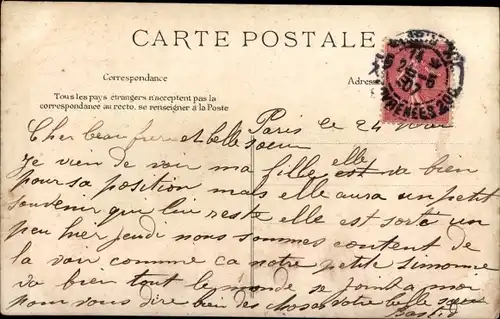 CARTE POSTALE
Correspondance
Adres
Tous les pays étrangers n'acceptent pas la
correspondance au recto, se renseigner à la Poste
24 -5
07
PYRENEES 20
Paris le 24 Mai
Cher beau frere et belle
soeur
Je vien de voir ma fille elle est va bien
pour sa position mais elle aura un petit
souvenir qui lui reste elle est sorté un
peu hier jeudi nous sommes content de
la voir comme ca notre petite Simonne
va bien tout le monde se joint a moi
pour vous dire bien des choses votre belle soeur